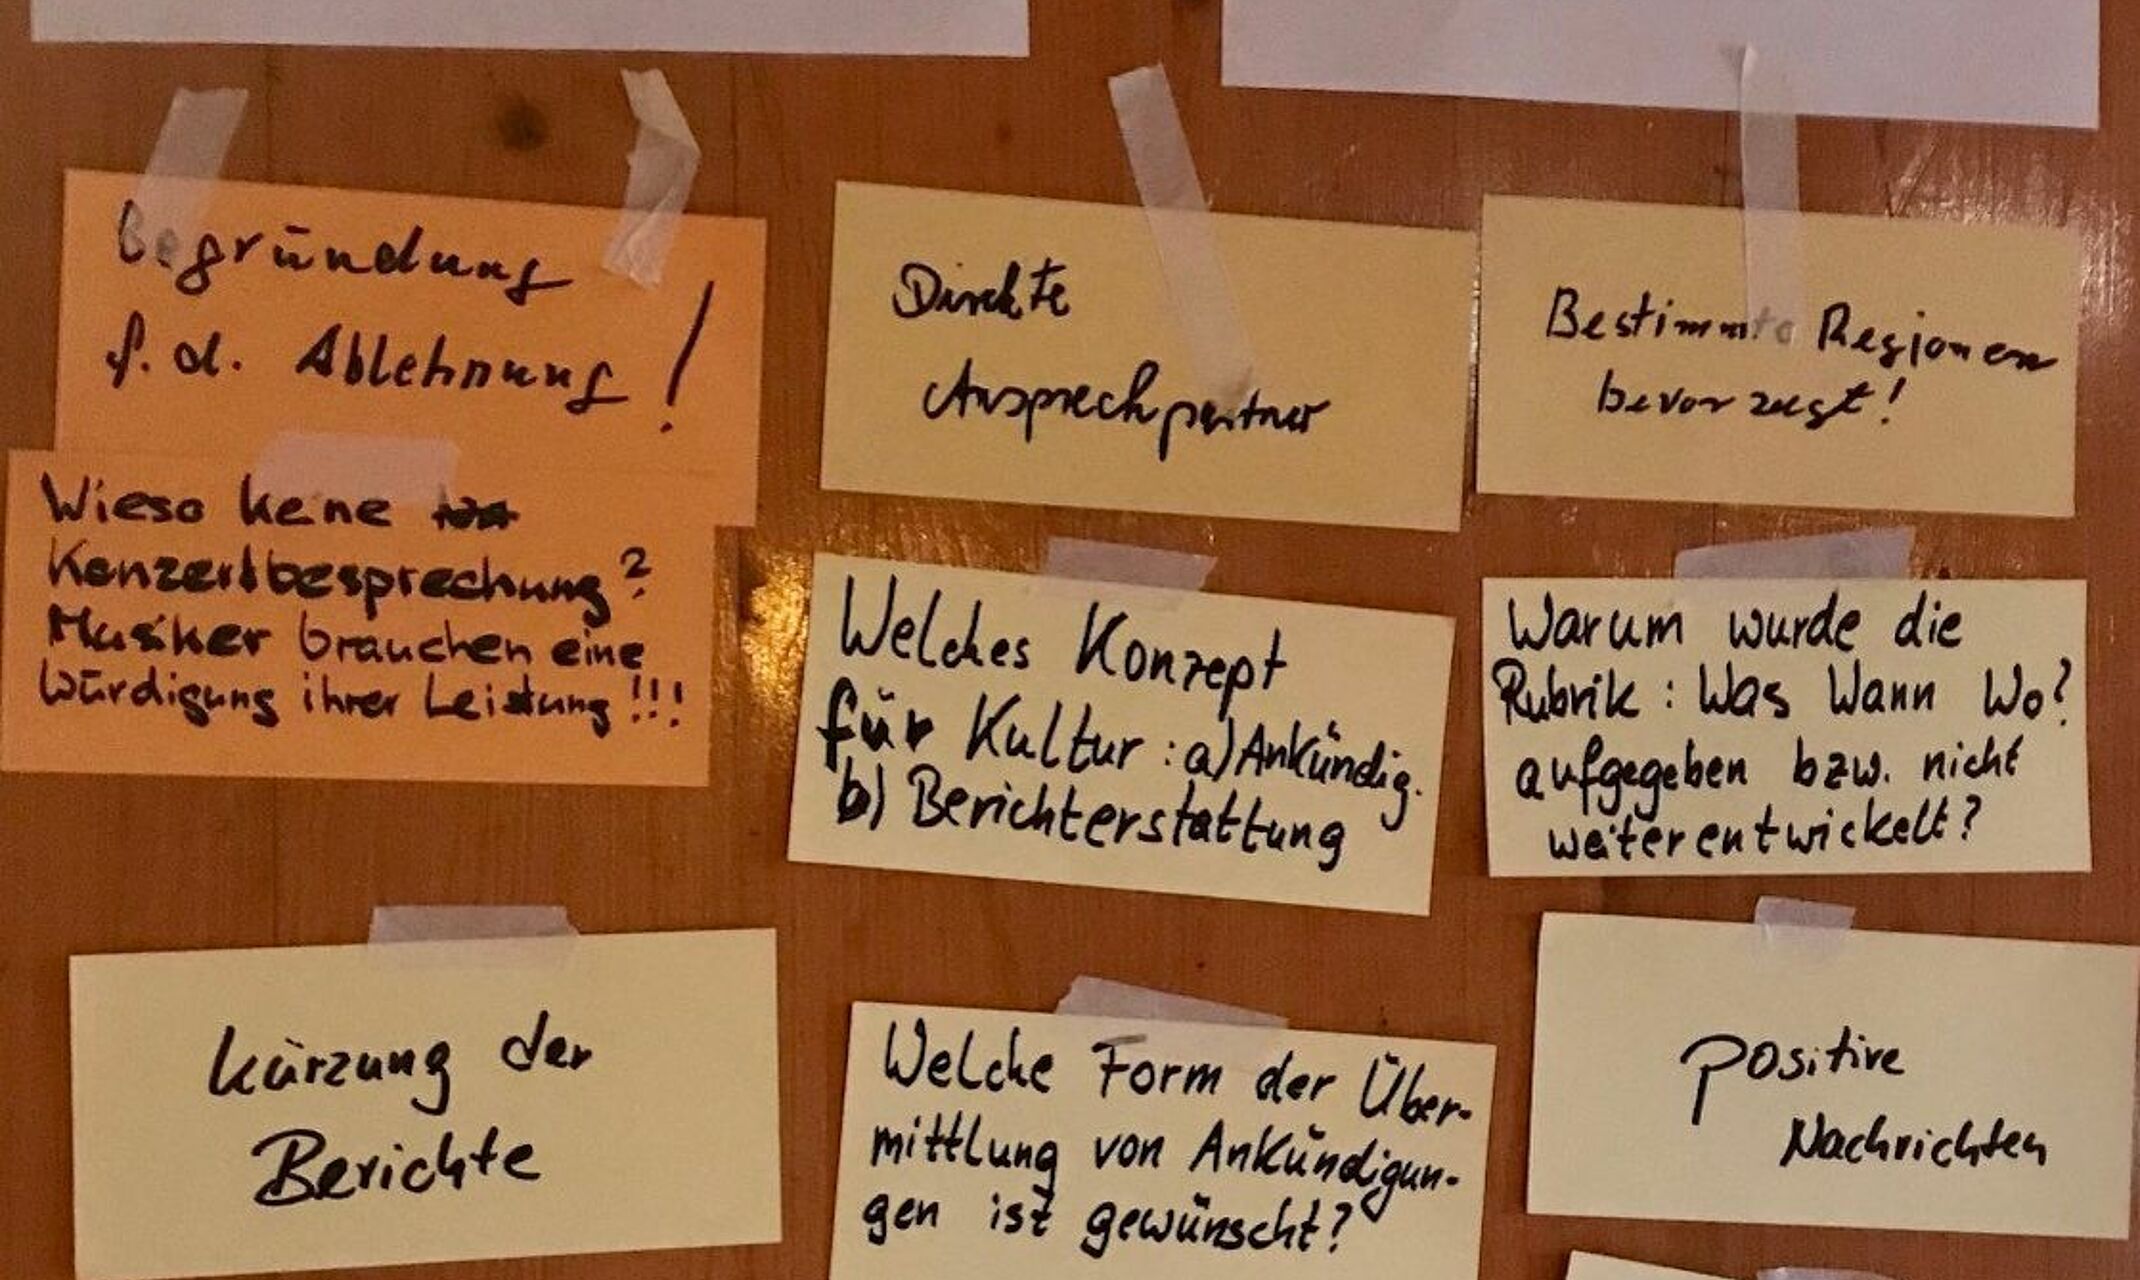 Begründung
f. d. Ablehnung!
Wieso keine
Konzertbesprechung?
Musiker brauchen eine
Würdigung ihrer Leistung!!!
Direkte
Ansprechpartner
Bestimmte Regionen
bevorzugt!
Welches Konzept
für Kultur: a) Ankündig.
b) Berichterstattung
Warum wurde die
Rubrik: Was Wann Wo?
aufgegeben bzw. nicht
weiterentwickelt?
Kürzung der
Berichte
Welche Form der Über-
mittlung von Ankündigun-
gen ist gewünscht?
positive
Nachrichten